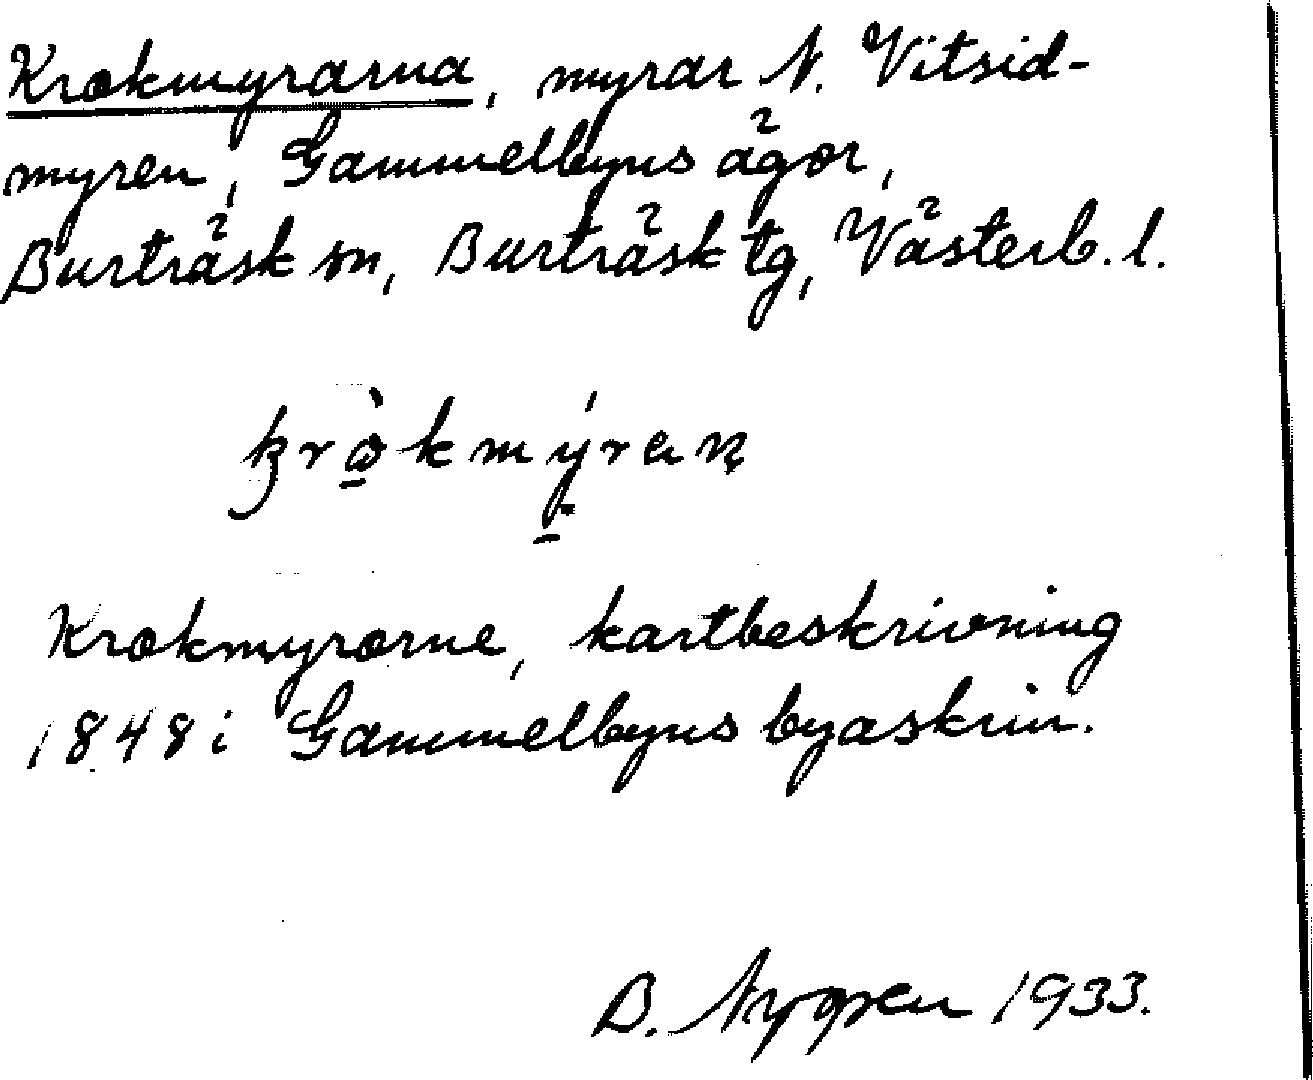 Krokmyrarna, myrar N. Vitsid-
myren, Gammelbyns ägor,
Burträsk sn, Burträsk tg, Västerb. l.
Krokmyrorne, kartbeskrivning
1848 i Gammelbyns byaskrin.
B. Nygren 1933.